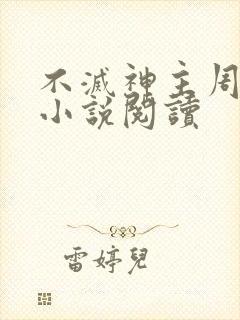 不滅神主周
小說閱讀
雷婷兒